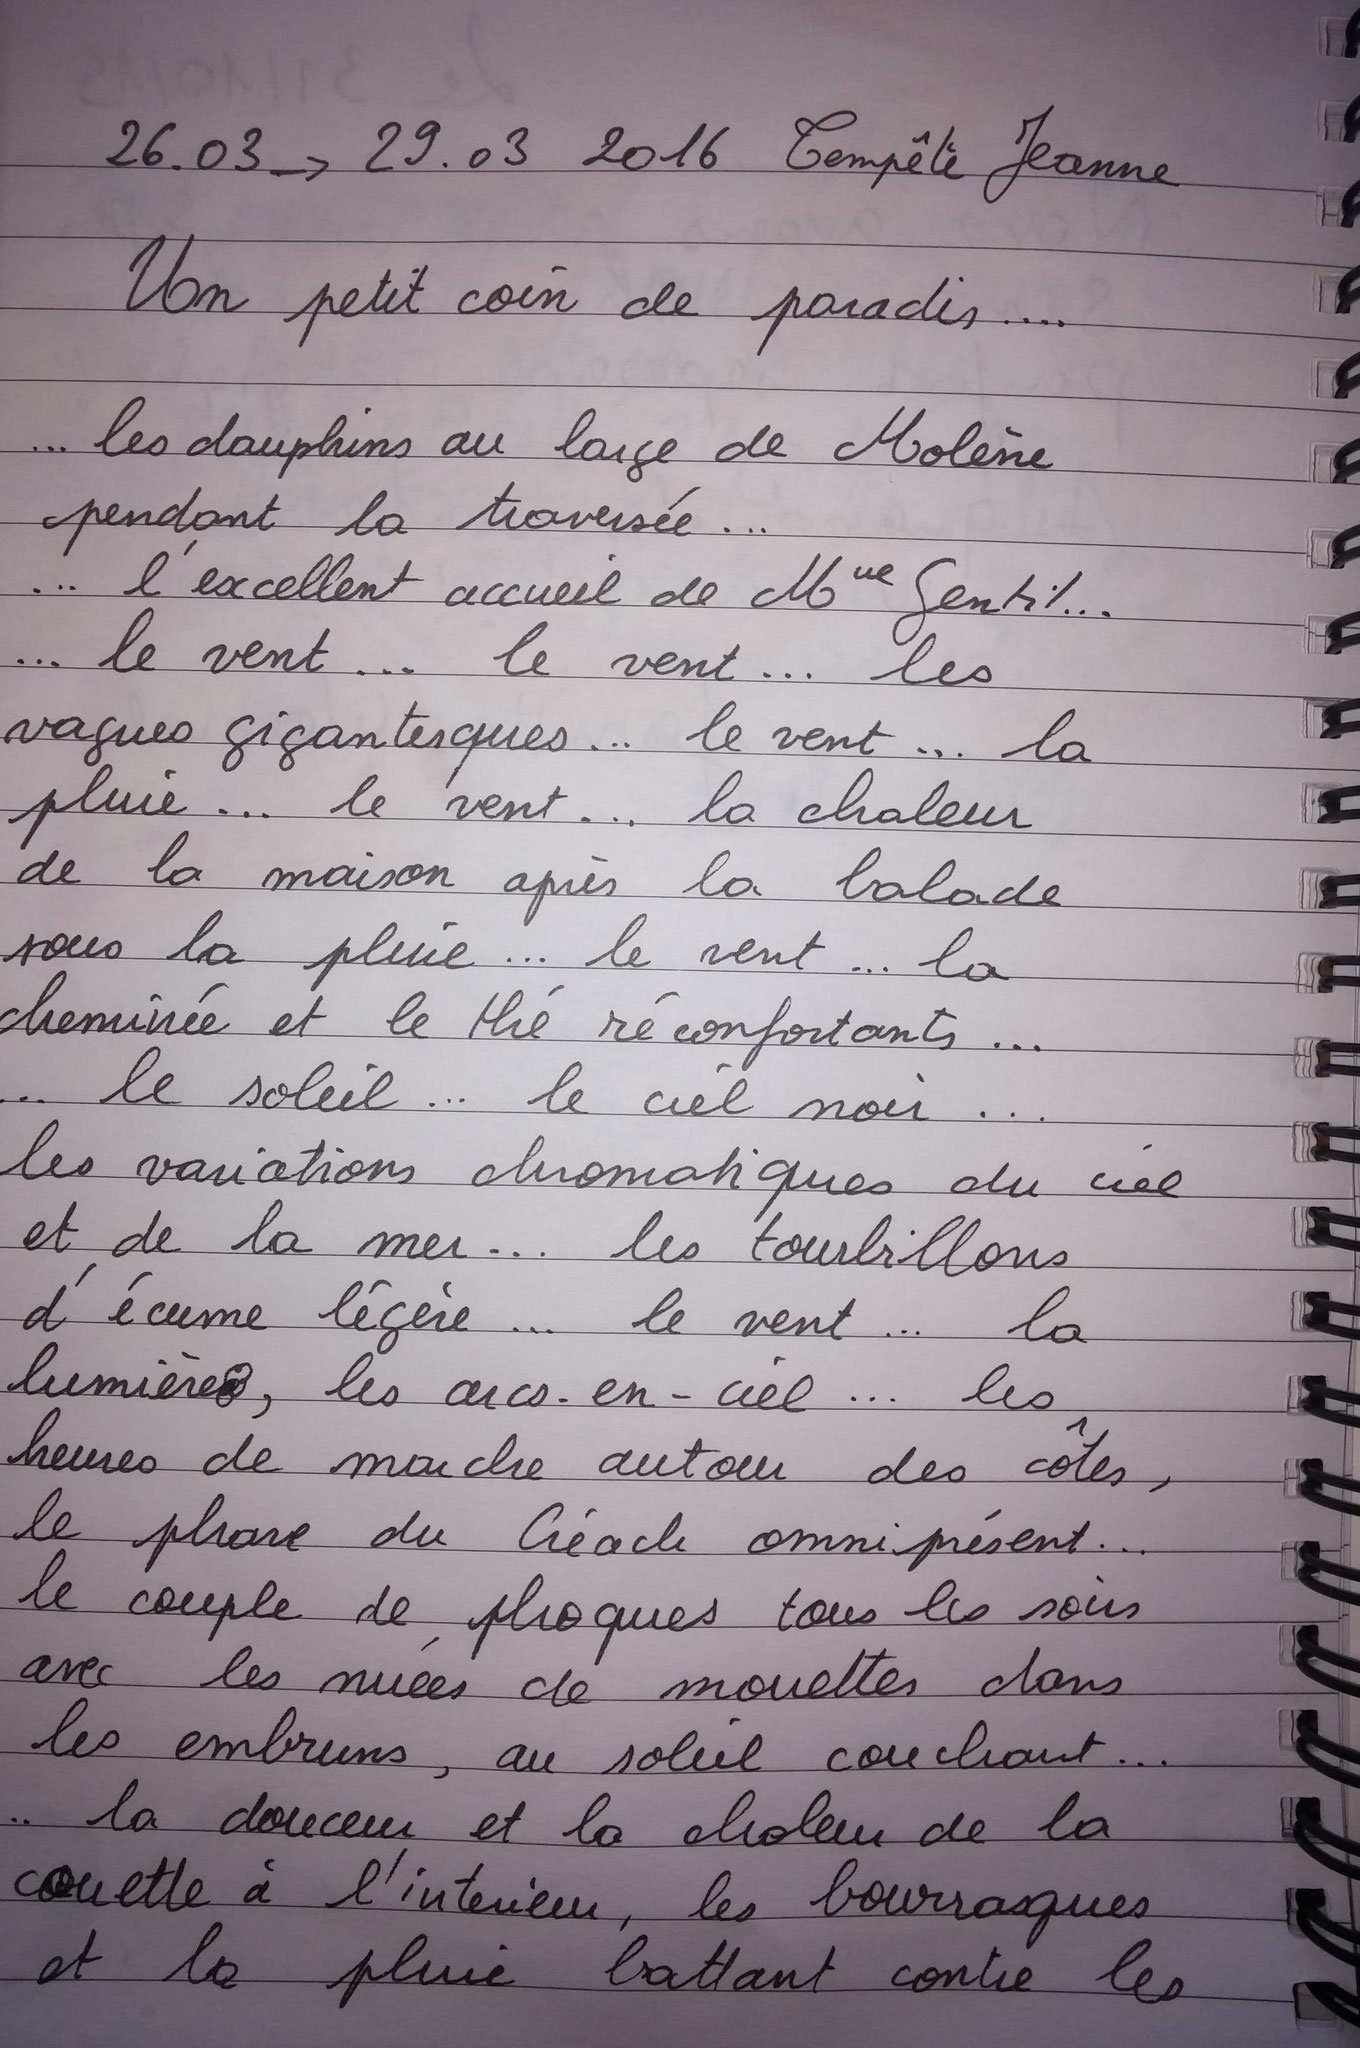 26.03 → 29.03 2016 Tempête Jeanne
Un petit coin de paradis....
... les dauphins au large de Molène
pendant la traversée...
... l'excellent accueil de Mme Gentil...
... le vent... le vent... les
vagues gigantesques... le vent... la
pluie... le vent... la chaleur
de la maison après la balade
sous la pluie... le vent... la
cheminée et le thé réconfortants...
... le soleil... le ciel noir...
les variations chromatiques du ciel
et de la mer... les tourbillons
d'écume légère... le vent... la
lumière, les arcs-en-ciel... les
heures de marche autour des côtes,
le phare du Créach omniprésent...
le couple de phoques tous les soirs
avec les nuées de mouettes dans
les embruns, au soleil couchant...
.. la douceur et la chaleur de la
couette à l'interieur, les bourrasques
et la pluie battant contre les